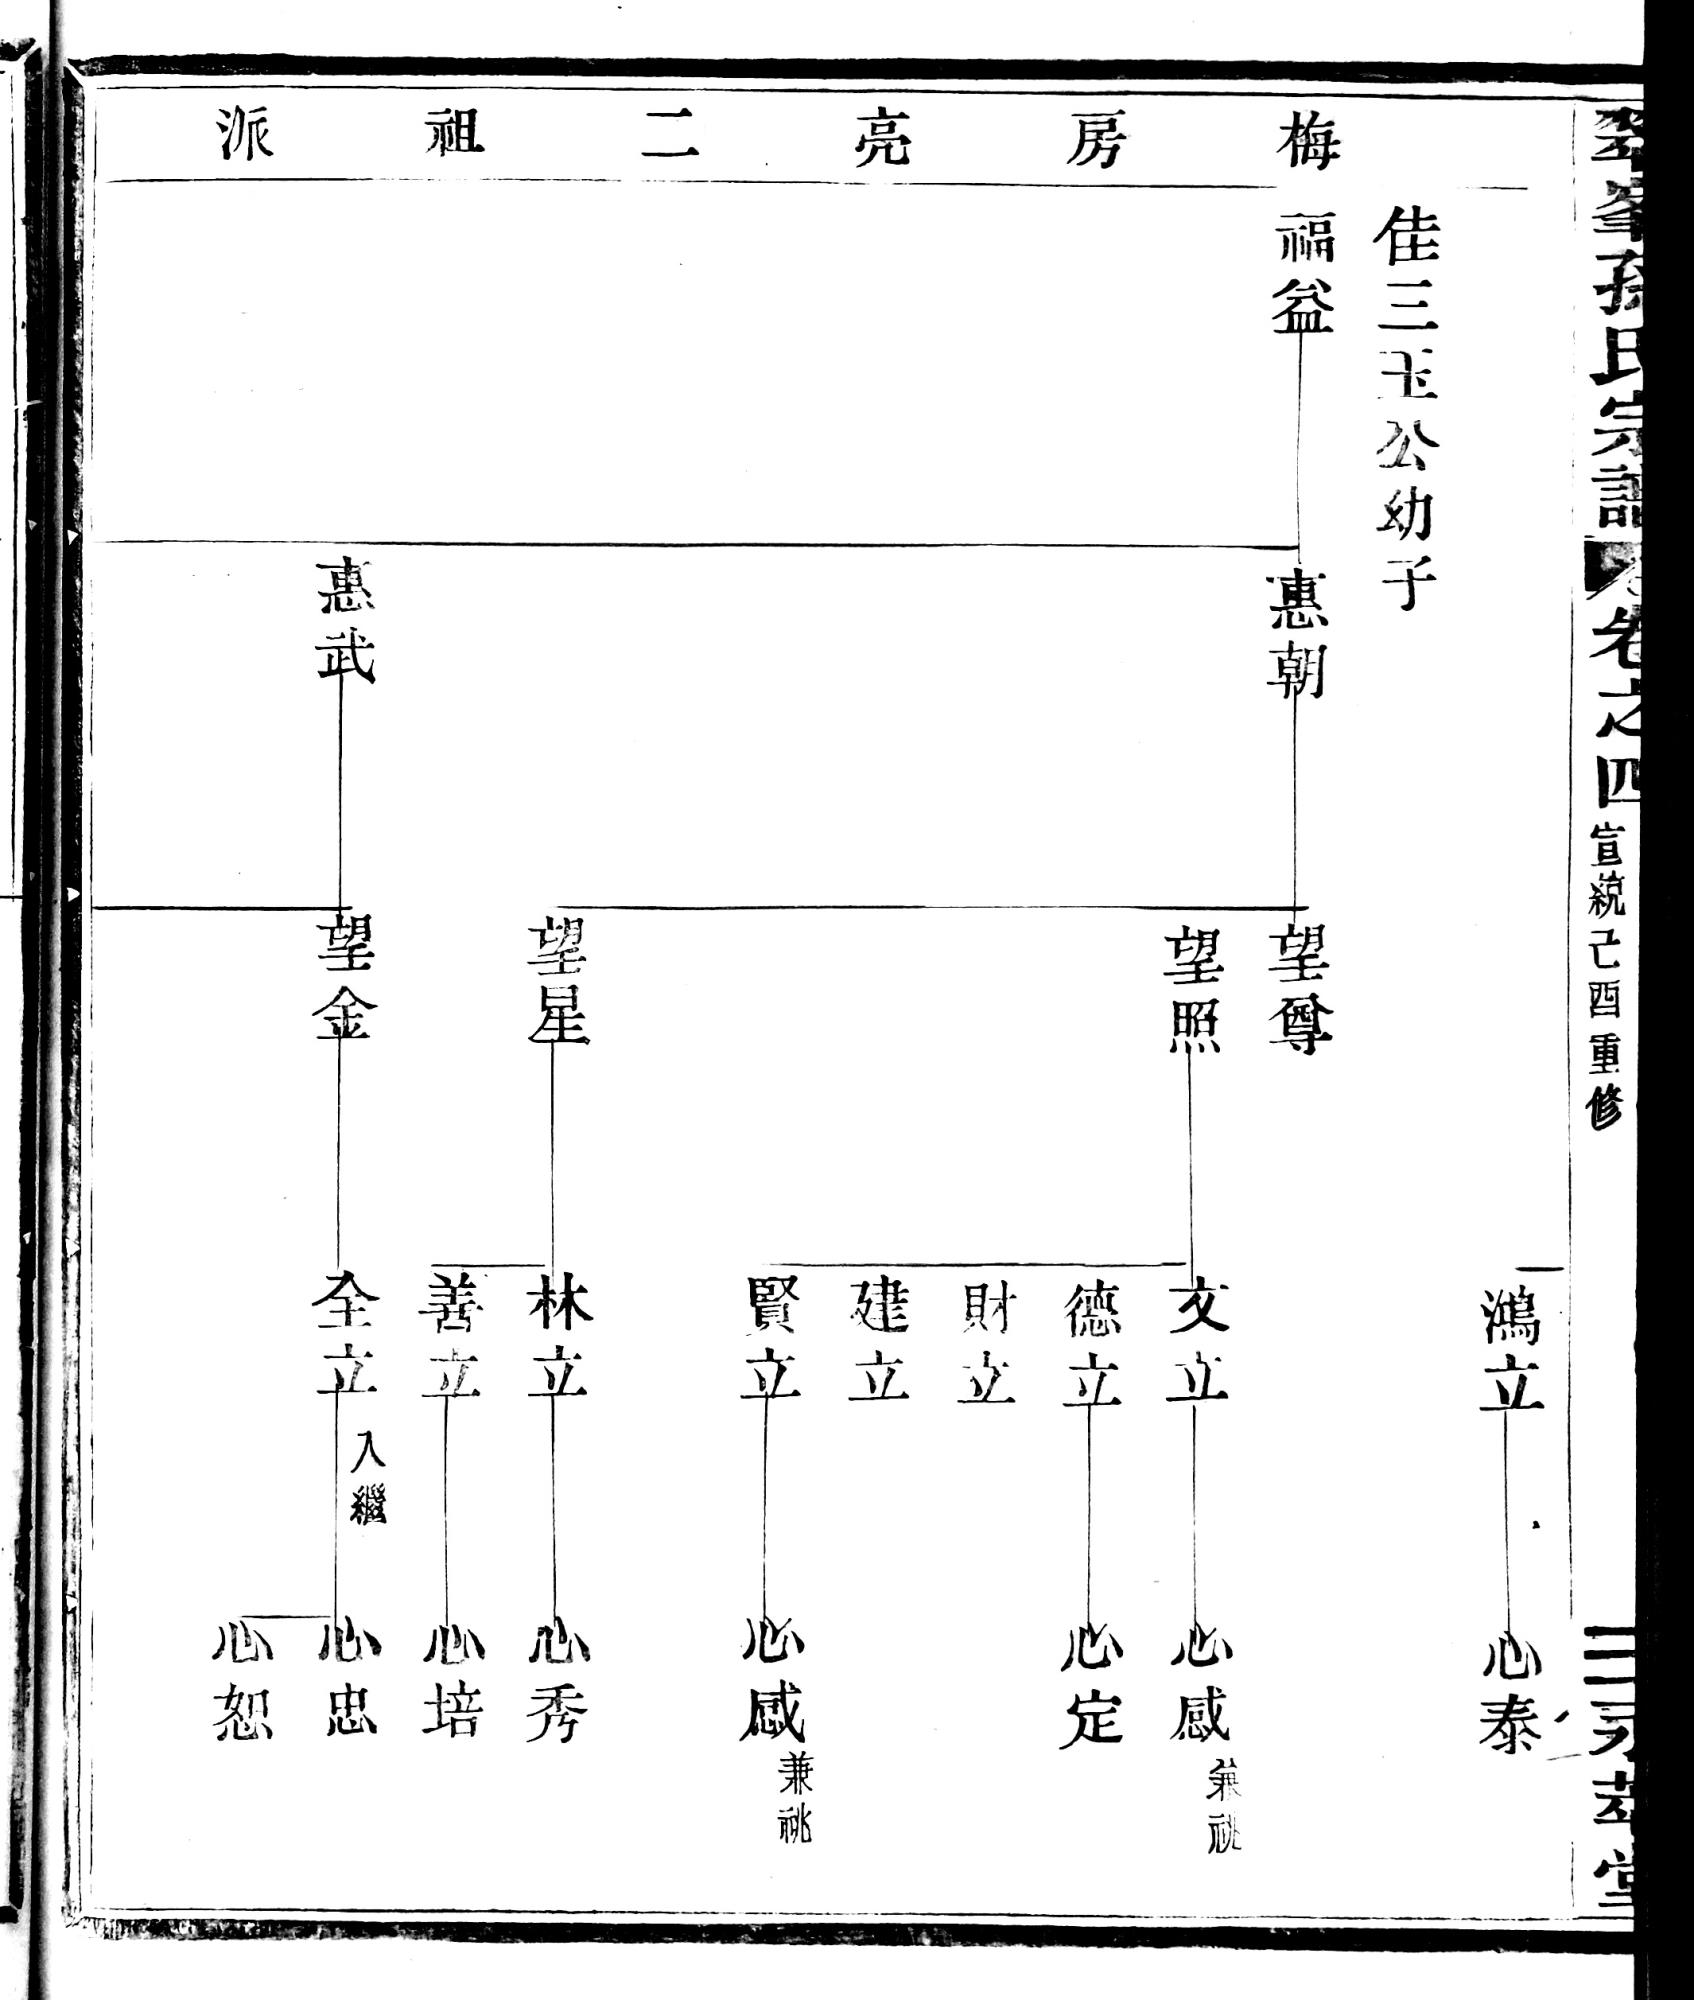 孫氏宗譜 卷之四 宣統己酉重修
堂
梅房亮二祖派
鴻立
心泰
佳三玉公幼子
福益
惠朝
望尊
望照
文立
心感 兼祧
德立
心定
財立
建立
賢立
心感 兼祧
望星
林立
心秀
善立
心培
惠武
望金
全立 入繼
心忠
心恕